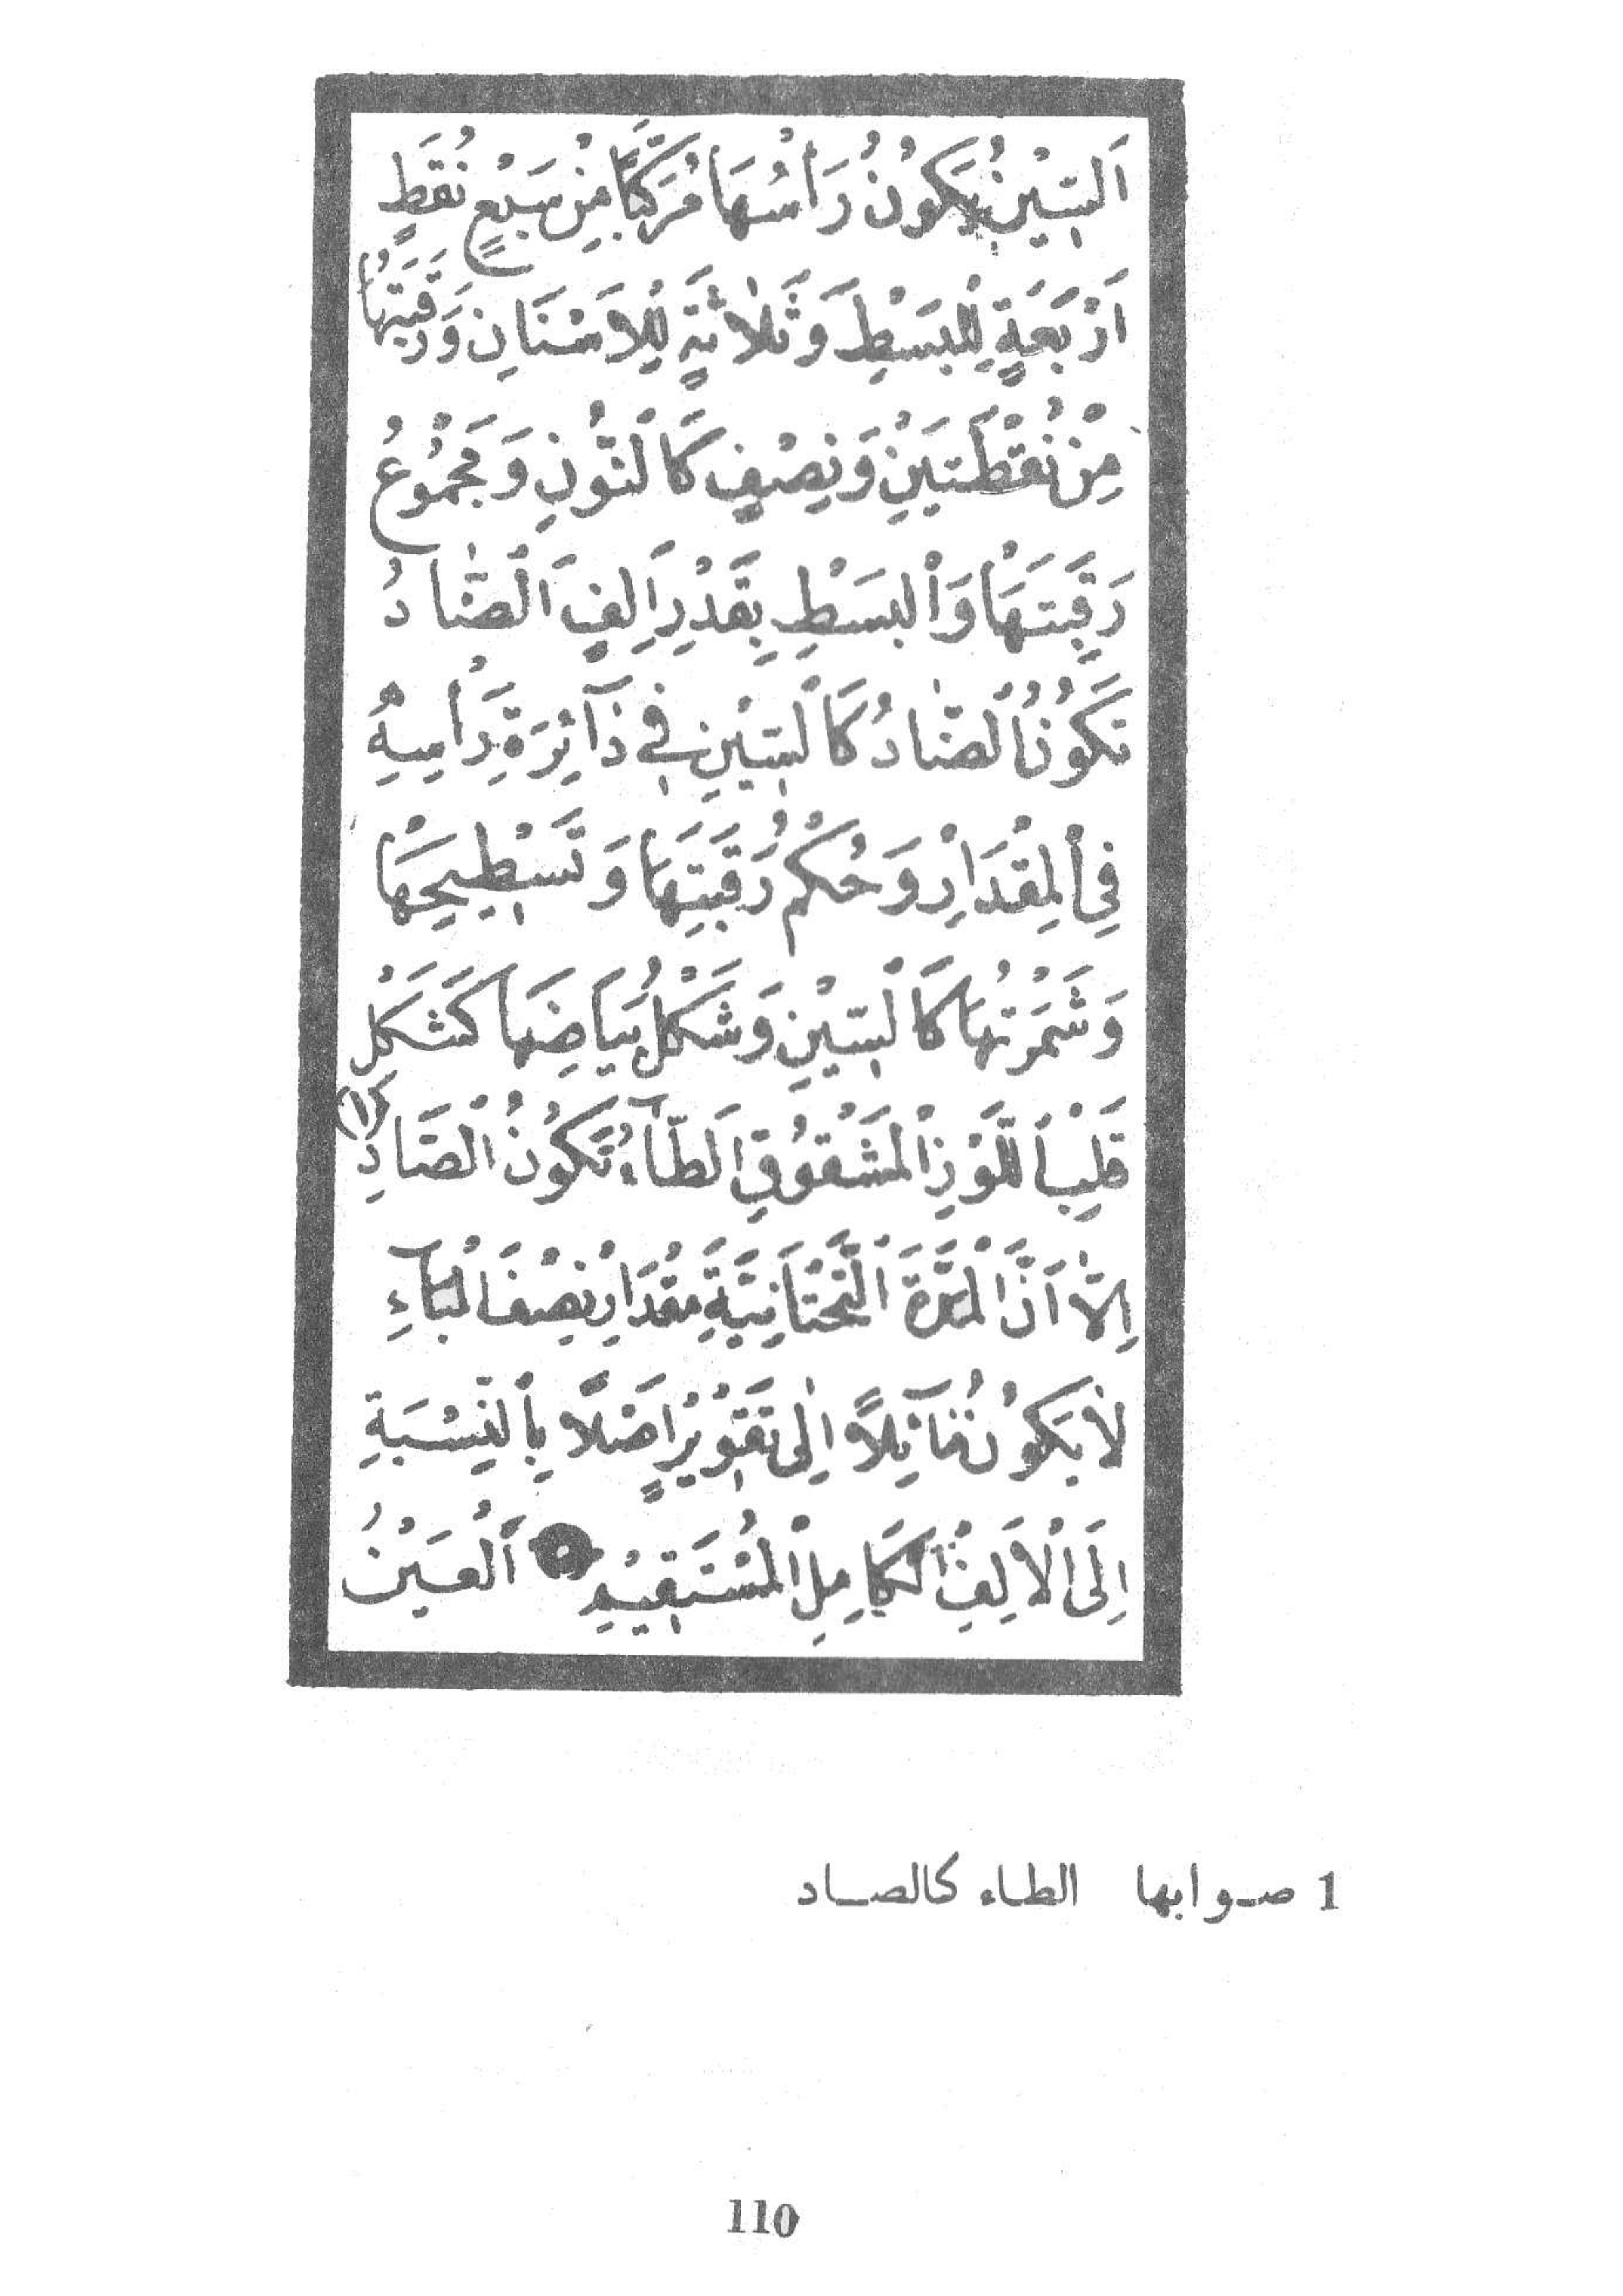 اَلسِّيْنُ يَكُوْنُ رَأْسُهَا مُرَكَّبًا مِنْ سَبْعِ نُقَطٍ
اَرْبَعَةٍ لِلْبَسْطِ وَثَلَاثَةٍ لِلْاَسْنَانِ وَرَقَبَتُهَا
مِنْ نُقْطَتَيْنِ وَنِصْفٍ كَالنُّوْنِ وَمَجْمُوْعُ
رَقَبَتِهَا وَالْبَسْطِ بِقَدْرِ اَلِفٍ اَلضَّادُ
تَكُوْنُ الضَّادُ كَالسِّيْنِ فِي دَآئِرَةِ رَأْسِهِ
فِي الْمِقْدَارِ وَحُكْمُ رَقَبَتِهَا وَتَسْطِيحِهَا
وَشَمْرَتُهَا كَالسِّيْنِ وَشَكْلُ بَيَاضِهَا كَشَكْلِ
قَلْبِ اللَّوْزِ الْمَشْقُوْقِ اَلطَّآءُ تَكُوْنُ الصَّادِ كَ (١)
اِلَّا اَنَّ الْمَدَّةَ التَّحْتَانِيَّةَ مِقْدَارُ نِصْفِ الْبَآءِ
لَا يَكُوْنُ مَآئِلًا اِلٰى تَقْوِيْرٍ اَصْلًا بِالنِّسْبَةِ
اِلَى الْاَلِفِ الْكَامِلِ الْمُسْتَقِيْمِ اَلْعَيْنُ
1 صوابها الطاء كالصاد
110